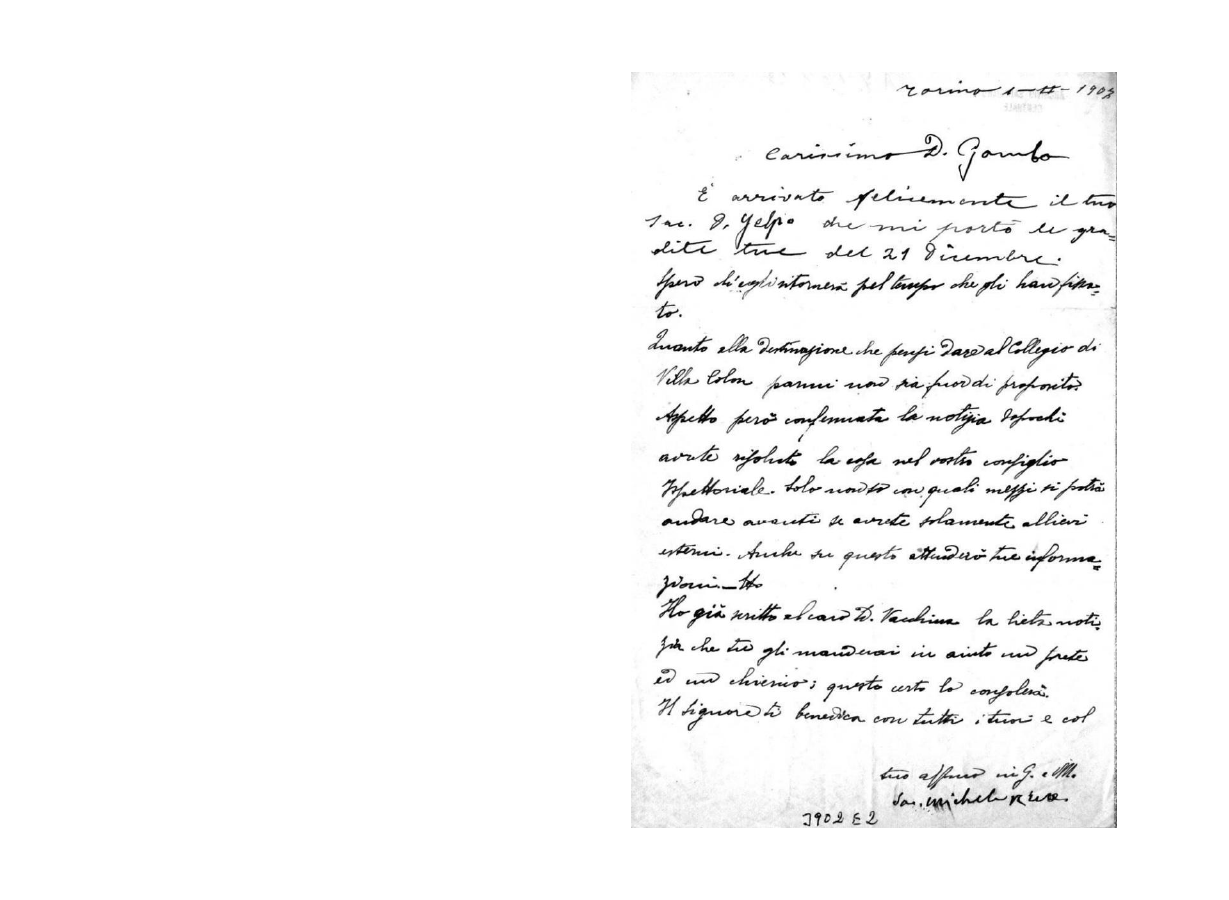 Torino 1-II-1902
Carissimo D. Gamba
È arrivato felicemente il tuo
Sac. D. Yelpo che mi portò le gra=
dite tue del 21 Dicembre.
Spero ch'egli ritornerà pel tempo che gli han fissa=
to.
Quanto alla destinazione che pensi dare al Collegio di
Villa Colon parmi non sia fuor di proposito.
Aspetto però confermata la notizia dopochè
avrete risoluto la cosa nel vostro consiglio
Ispettoriale. Solo non so con quali mezzi si potrà
andare avanti se avrete solamente allievi
esterni. Anche su questo attenderò tue informa=
zioni.
Ho già scritto al caro D. Vacchina la lieta noti=
zia che tu gli manderai in aiuto un prete
ed un chierico; questo certo lo consolerà.
Il Signore ti benedica con tutti i tuoi e col
tuo affmo in G. e M.
Sac. Michele Rua.
J902 E2